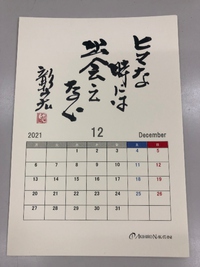 ヒマな
時には
出会え
ない
2021 12 December
1 2 3 4 5
6 7 8 9 10 11 12
13 14 15 16 17 18 19
20 21 22 23 24 25 26
27 28 29 30 31